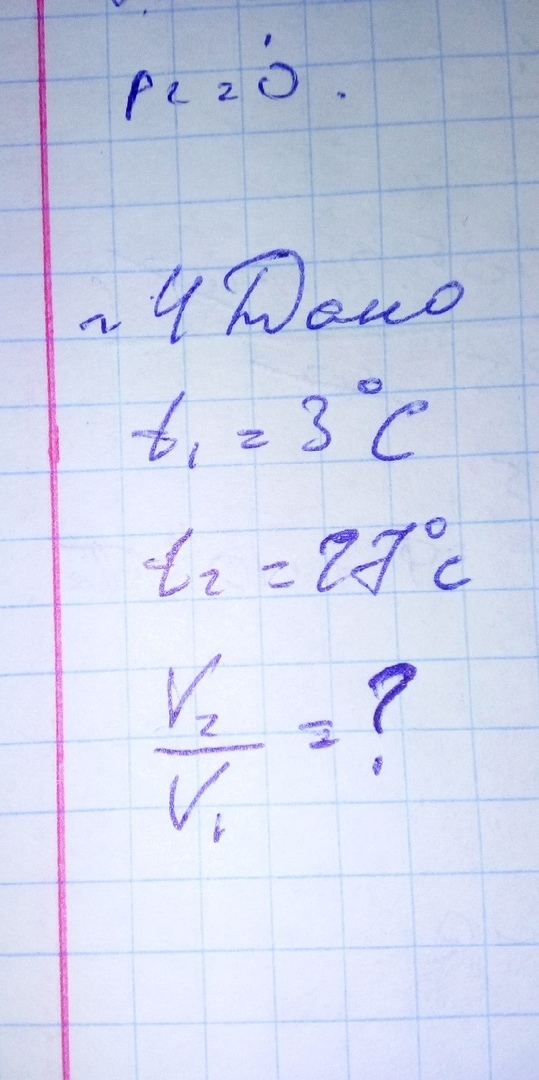 p₂ = 0.
№4 Дано
t₁ = 3°C
t₂ = 27°C
V₂/V₁ = ?